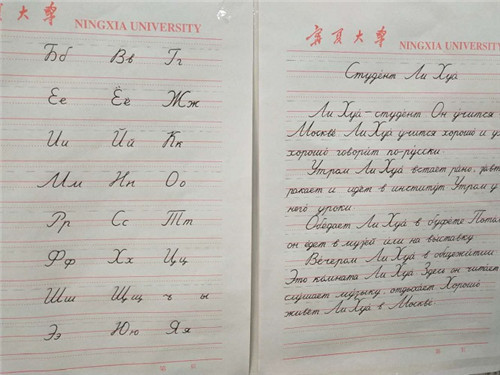 夏大学
NINGXIA UNIVERSITY
Бб Вв Гг
Ее Ёё Жж
Ии Йй Кк
Мм Нн Оо
Рр Сс Тт
Фф Хх Цц
Шш Щщ ъ ы
Ээ Юю Яя
第 页
宁夏大学
NINGXIA UNIVERSITY
Студе́нт Ли Хуа́
Ли Хуа́ – студе́нт Он у́чится
Москве́ Ли Хуа́ у́чится хорошо́ и у
хорошо́ говори́т по-ру́сски.
У́тром Ли Хуа́ встаёт ра́но, за́вт
ракает и идёт в институ́т У́тром у
него́ уро́ки
Обе́дает Ли Хуа́ в буфе́те Пото́м
он е́дет в музе́й или на вы́ставку
Ве́чером Ли Хуа́ в общежи́тии
Э́то ко́мната Ли Хуа́ Здесь он чита́ет
слу́шает му́зыку, отдыха́ет Хорошо́
живёт Ли Хуа́ в Москве́.
第 页